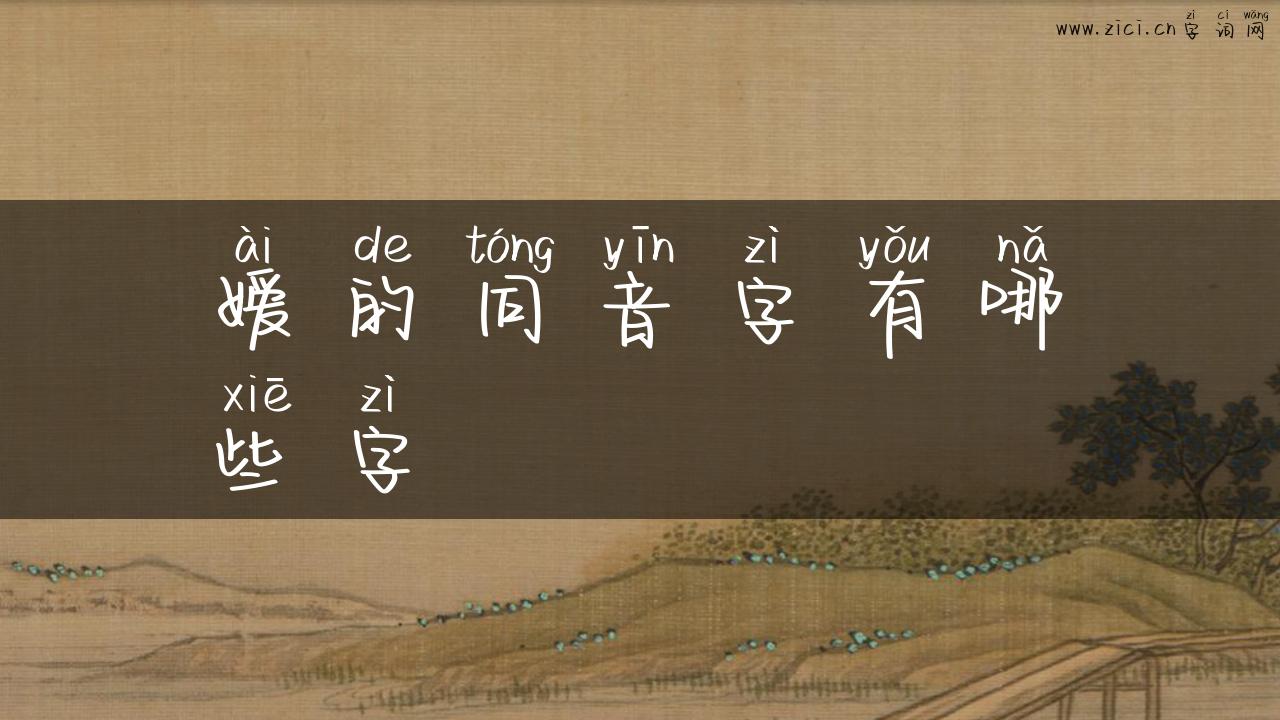 zì cí wǎng
www.zici.cn 字词网
ài de tóng yīn zì yǒu nǎ
嫒的同音字有哪
xiē zì
些字